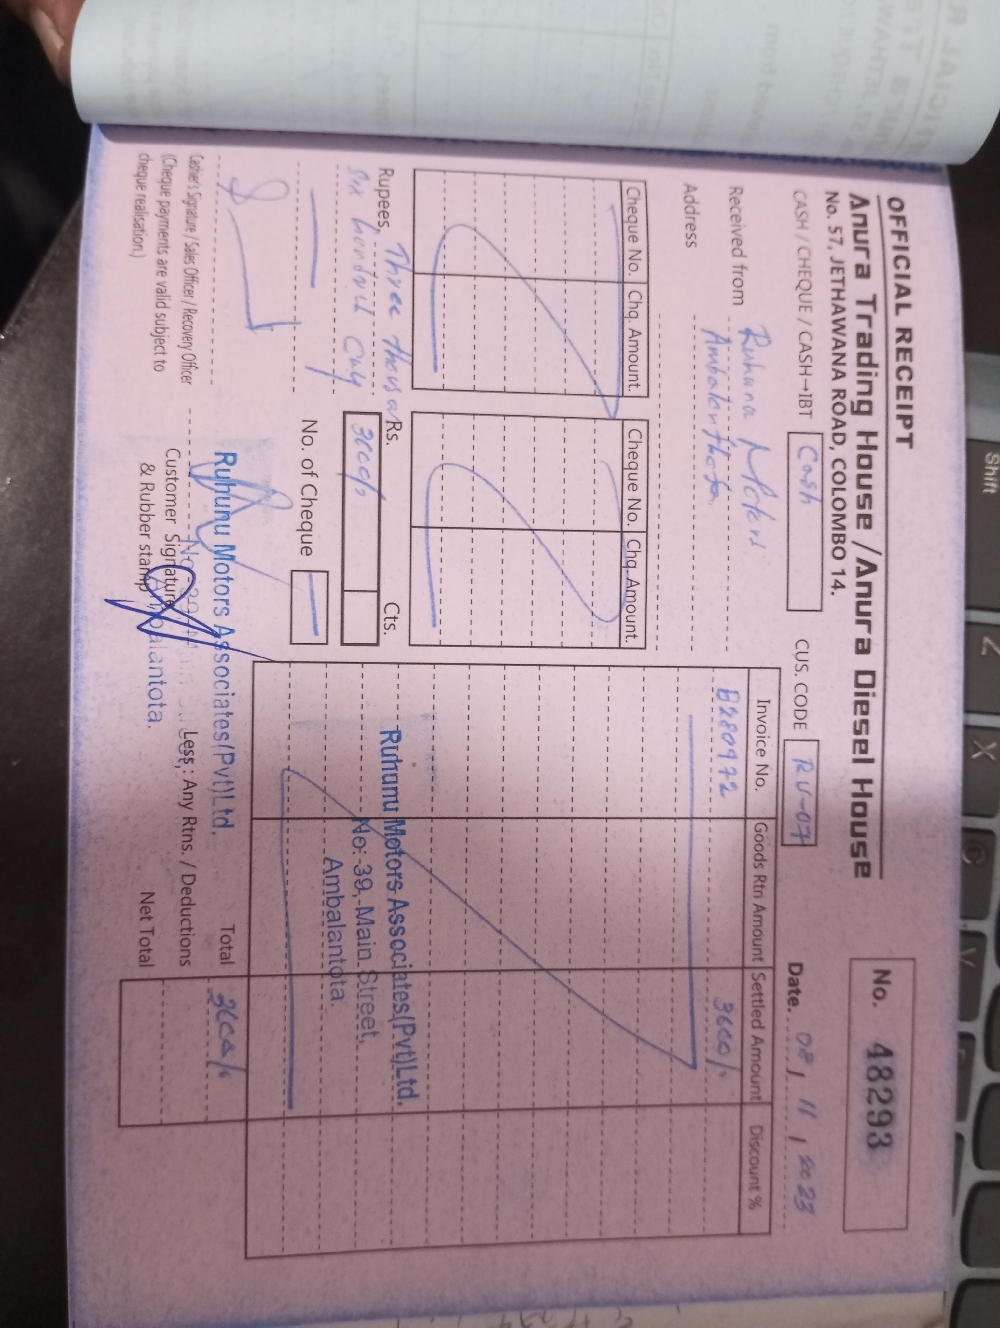 OFFICIAL RECEIPT
No. 48293
Anura Trading House / Anura Diesel House
No. 57, JETHAWANA ROAD, COLOMBO 14.
CASH / CHEQUE / CASH→IBT Cash CUS. CODE RU-07 Date. 08, 11, 2023
Received from Ruhunu Motors
Address Ambalanthota
Cheque No. Chq. Amount. Cheque No. Chq. Amount.
Invoice No. Goods Rtn Amount Settled Amount Discount %
B280972 3600/-
Rupees, Three thousand
Six hundred only
Rs. Cts.
3600/-
No. of Cheque
Ruhunu Motors Associates(Pvt)Ltd.
No: 39, Main Street,
Ambalantota.
Cashier's Signature / Sales Officer / Recovery Officer
(Cheque payments are valid subject to
cheque realisation.)
Ruhunu Motors Associates(Pvt)Ltd.
Customer Signature
& Rubber stamp
Ambalantota.
Total 3600/-
Less : Any Rtns. / Deductions
Net Total
Shift
Z
X
C
V